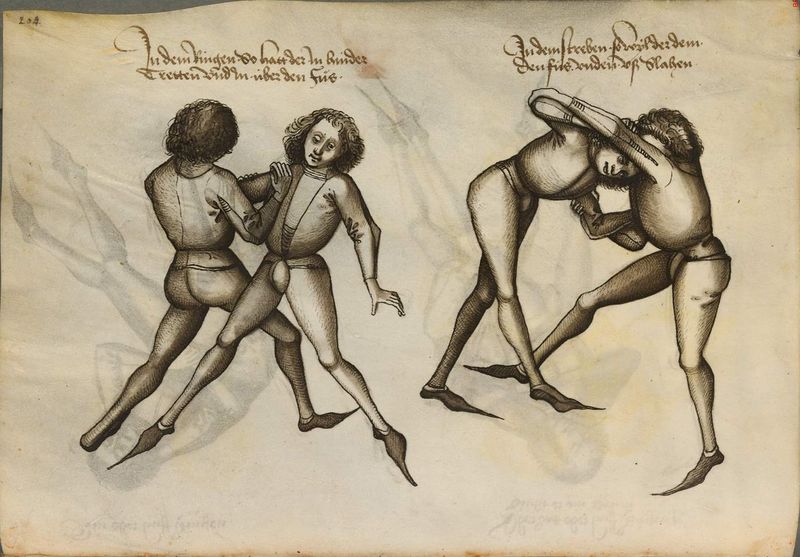 204.
In dem Ringen So hatt der In hinder
Tretten vnd In über den Fůs.
In dem streben so wyl der dem
den fůs vnden vß Slahen.